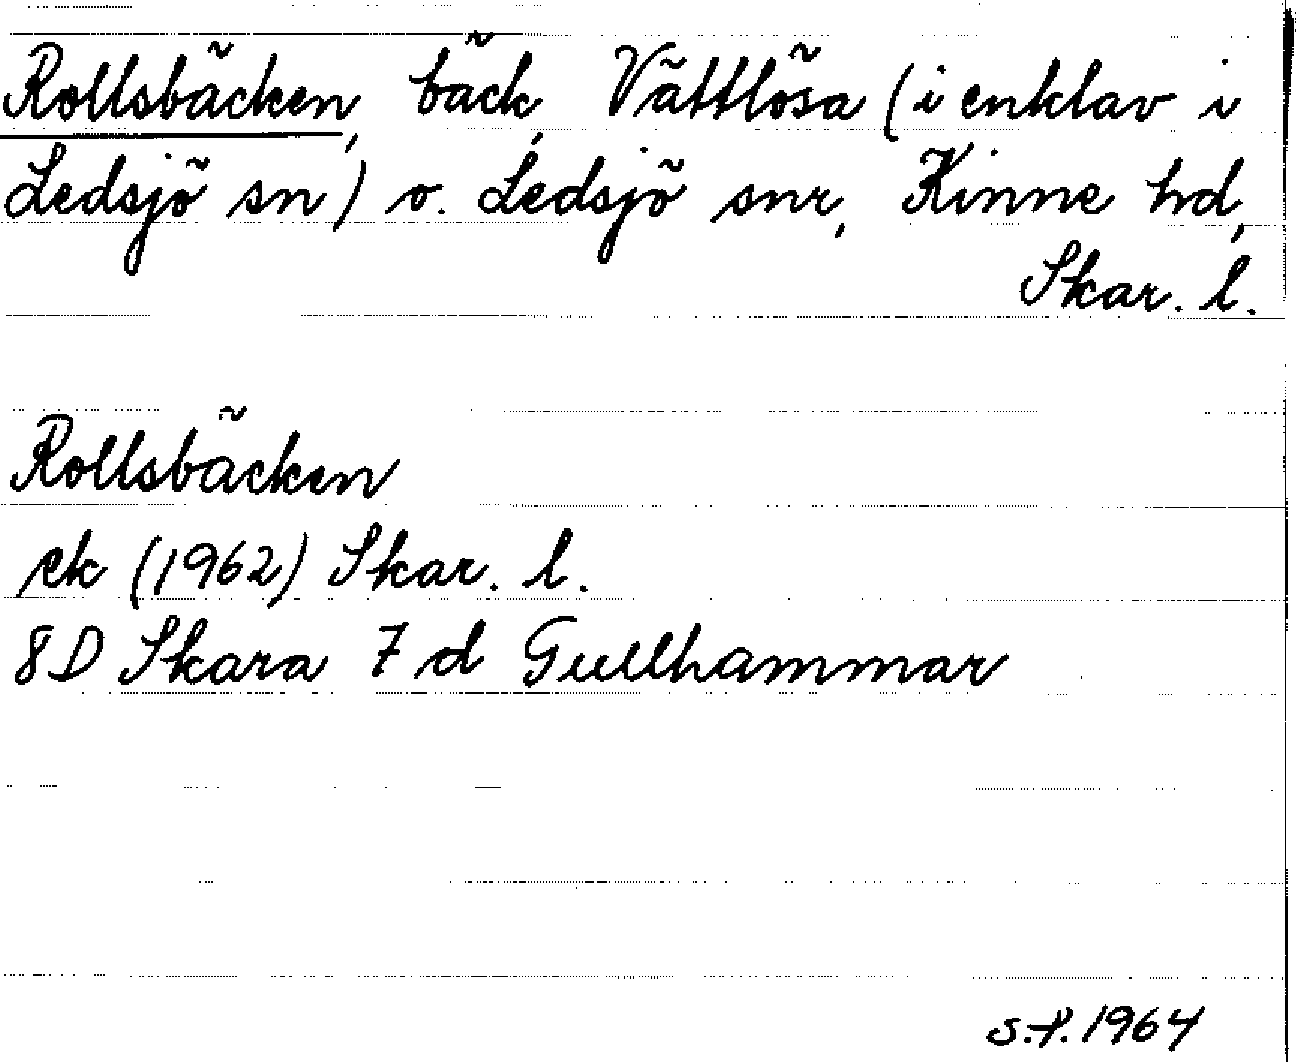 Rollsbäcken, bäck, Vättlösa (i enklav i
Ledsjö sn) o. Ledsjö snr, Kinne hd,
Skar. l.
Rollsbäcken
ek (1962) Skar. l.
8D Skara 7 d Gullhammar
1964